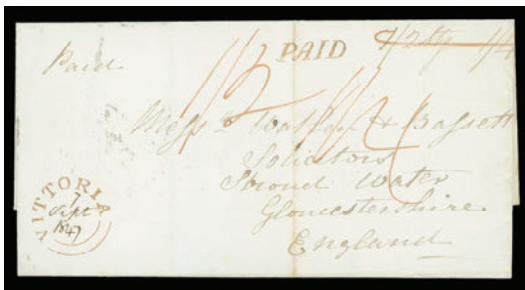 PAID 1/2 Stg 1/4
Paid
1/2
Messrs Watson & Bassett
Solicitors
Stroud Water
Gloucestershire
England
VITTORIA
7
Sept
1847